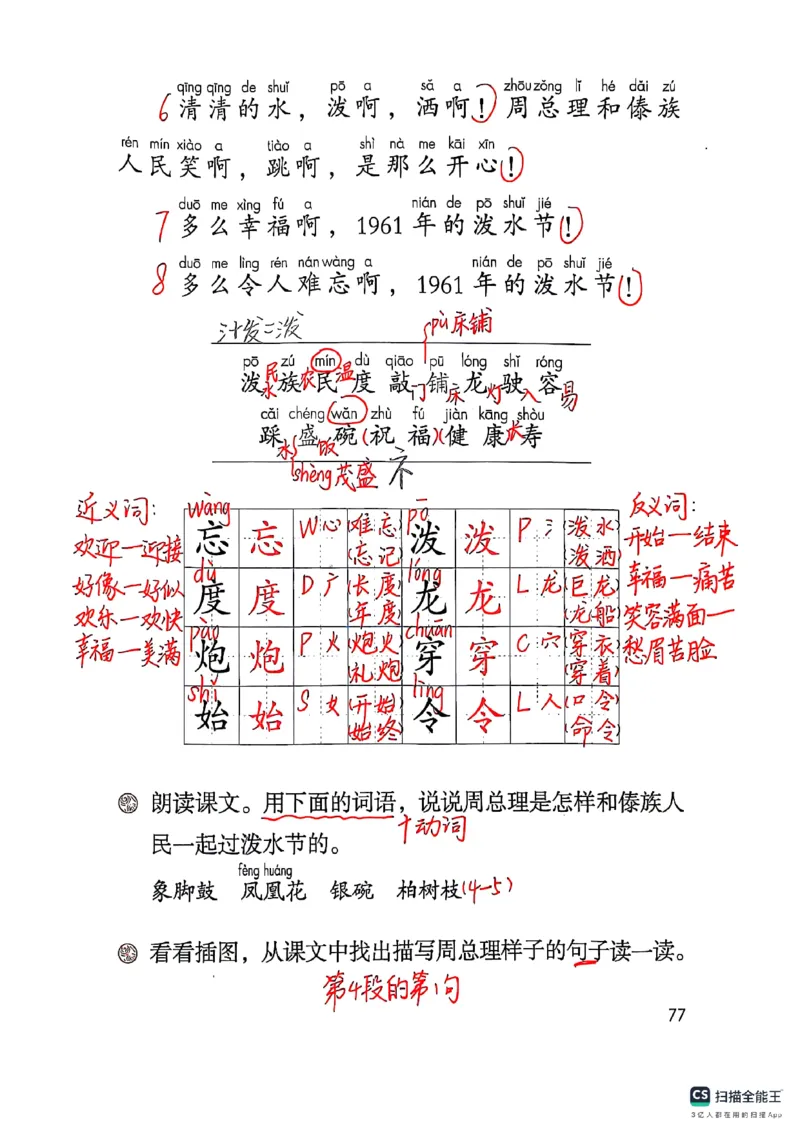 qīng qīng de shuǐ pō a sǎ a zhōu zǒng lǐ hé dǎi zú
6 清清的水，泼啊，洒啊！周总理和傣族
rén mín xiào a tiào a shì nà me kāi xīn
人民笑啊，跳啊，是那么开心！
duō me xìng fú a nián de pō shuǐ jié
7 多么幸福啊，1961年的泼水节！
duō me lìng rén nán wàng a nián de pō shuǐ jié
8 多么令人难忘啊，1961年的泼水节！
氵发=泼
pù 床铺
pō zú mín dù qiāo pū lóng shǐ róng
泼 族 民 度 敲 铺 龙 驶 容
水 民 农 温 门 床 灯 入 易
cāi chéng wǎn zhù fú jiàn kāng shòu
踩 盛 碗 (祝 福)(健 康 寿
水 饭 长
shèng 茂盛 礻
近义词：
欢迎—迎接
好像—好似
欢乐—欢快
幸福—美满
wàng pō
忘 忘 W 心 (难忘) (忘记) 泼 泼 P 氵 (泼水) (泼洒)
dù lóng
度 度 D 广 (长度) (年度) 龙 龙 L 龙 (巨龙) (龙船)
pào chuān
炮 炮 P 火 (炮火) (礼炮) 穿 穿 C 穴 (穿衣) (穿着)
shǐ lìng
始 始 S 女 (开始) (始终) 令 令 L 人 (口令) (命令)
反义词：
开始—结束
幸福—痛苦
笑容满面—
愁眉苦脸
朗读课文。用下面的词语，说说周总理是怎样和傣族人
十动词
民一起过泼水节的。
fèng huáng
象脚鼓 凤凰花 银碗 柏树枝(4—5)
看看插图，从课文中找出描写周总理样子的句子读一读。
第4段的第1句
77
CS 扫描全能王
3亿人都在用的扫描App